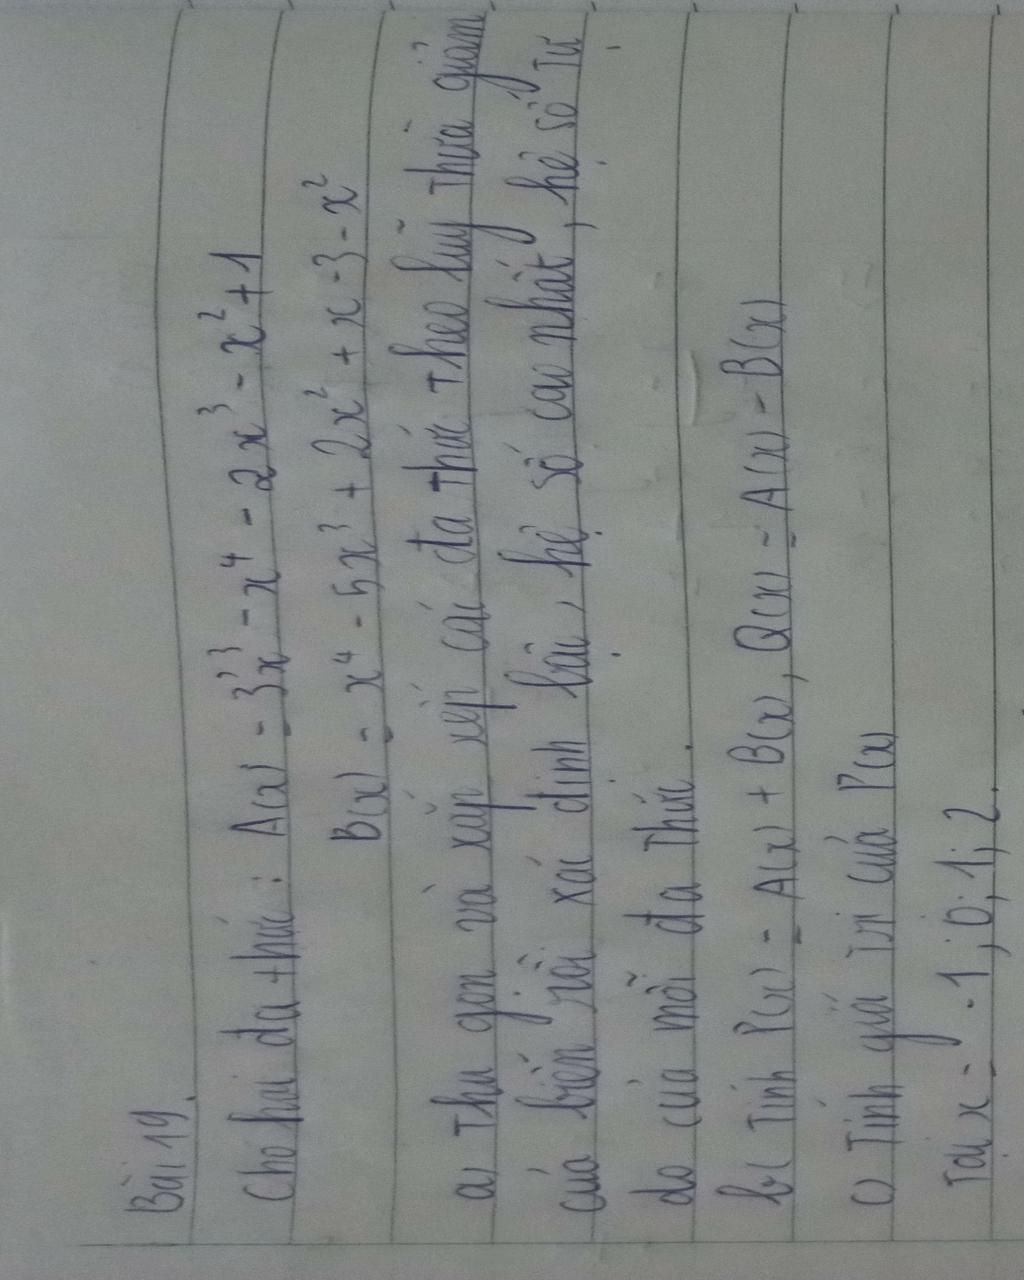 Bài 19.
Cho hai đa thức : A(x) = 3x³ - x⁴ - 2x³ - x² + 1
B(x) = x⁴ - 5x³ + 2x² + x - 3 - x²
a) Thu gọn và xắp xếp các đa thức theo luỹ thừa giảm
của biến rồi xác định bậc, hệ số cao nhất, hệ số tự
do của mỗi đa thức.
b) Tính P(x) = A(x) + B(x), Q(x) = A(x) - B(x)
c) Tính giá trị của P(x)
Tại x = -1; 0; 1; 2.